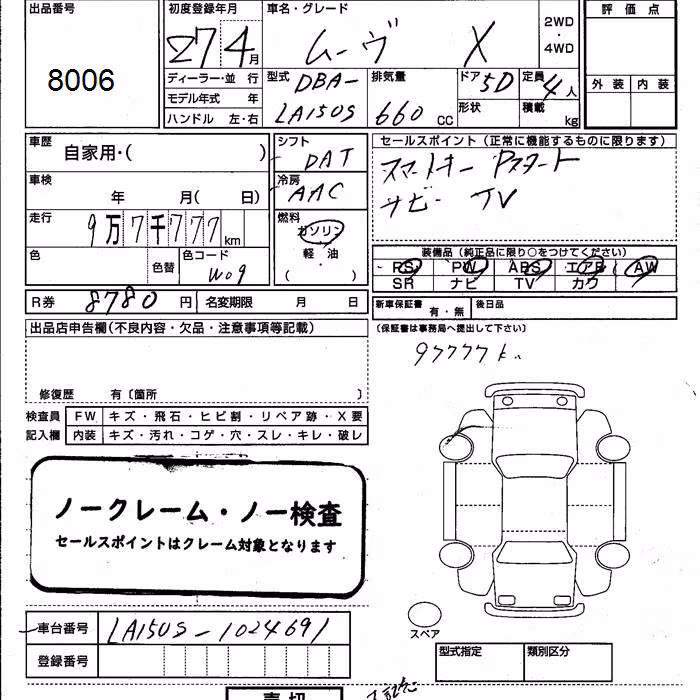 出品番号
8006
初度登録年月
27 4 月
車名・グレード
ムーヴ X
2WD
・
4WD
評価点
外装 内装
ディーラー・並 行
モデル年式 年
ハンドル 左・右
型式 DBA-
LA150S
排気量
660 CC
ドア 5D
形状
定員 4 人
積載 kg
車歴
自家用・( )
車検
年 月( 日)
走行
9万7千777 km
色
色替
色コード
W09
シフト
DAT
冷房
AAC
燃料
ガソリン
軽・油
( )
セールスポイント(正常に機能するものに限ります)
スマートキー Pスタート
ナビ TV
装備品(純正品に限り○をつけてください)
PS PW ABS エアB AW
SR ナビ TV カワ
R券 8780 円 名変期限 月 日
新車保証書 有・無 後日品
(保証書は事務局へ提出して下さい)
出品店申告欄(不良内容・欠品・注意事項等記載)
97777k
修復歴 有〔箇所 〕
検査員
記入欄
FW キズ・飛石・ヒビ割・リペア跡・X要
内装 キズ・汚れ・コゲ・穴・スレ・キレ・破レ
ノークレーム・ノー検査
セールスポイントはクレーム対象となります
スペア
車台番号 LA150S-1024691
登録番号
型式指定 類別区分